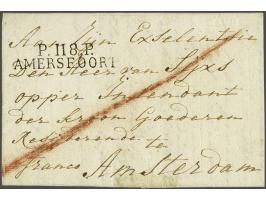 Aan Zijn Exselentie
P.118.P.
AMERSFOORT
Den Heer van Sijxs
opper Intendant
der Kroon Goederen
Residerende te
franco Amsterdam